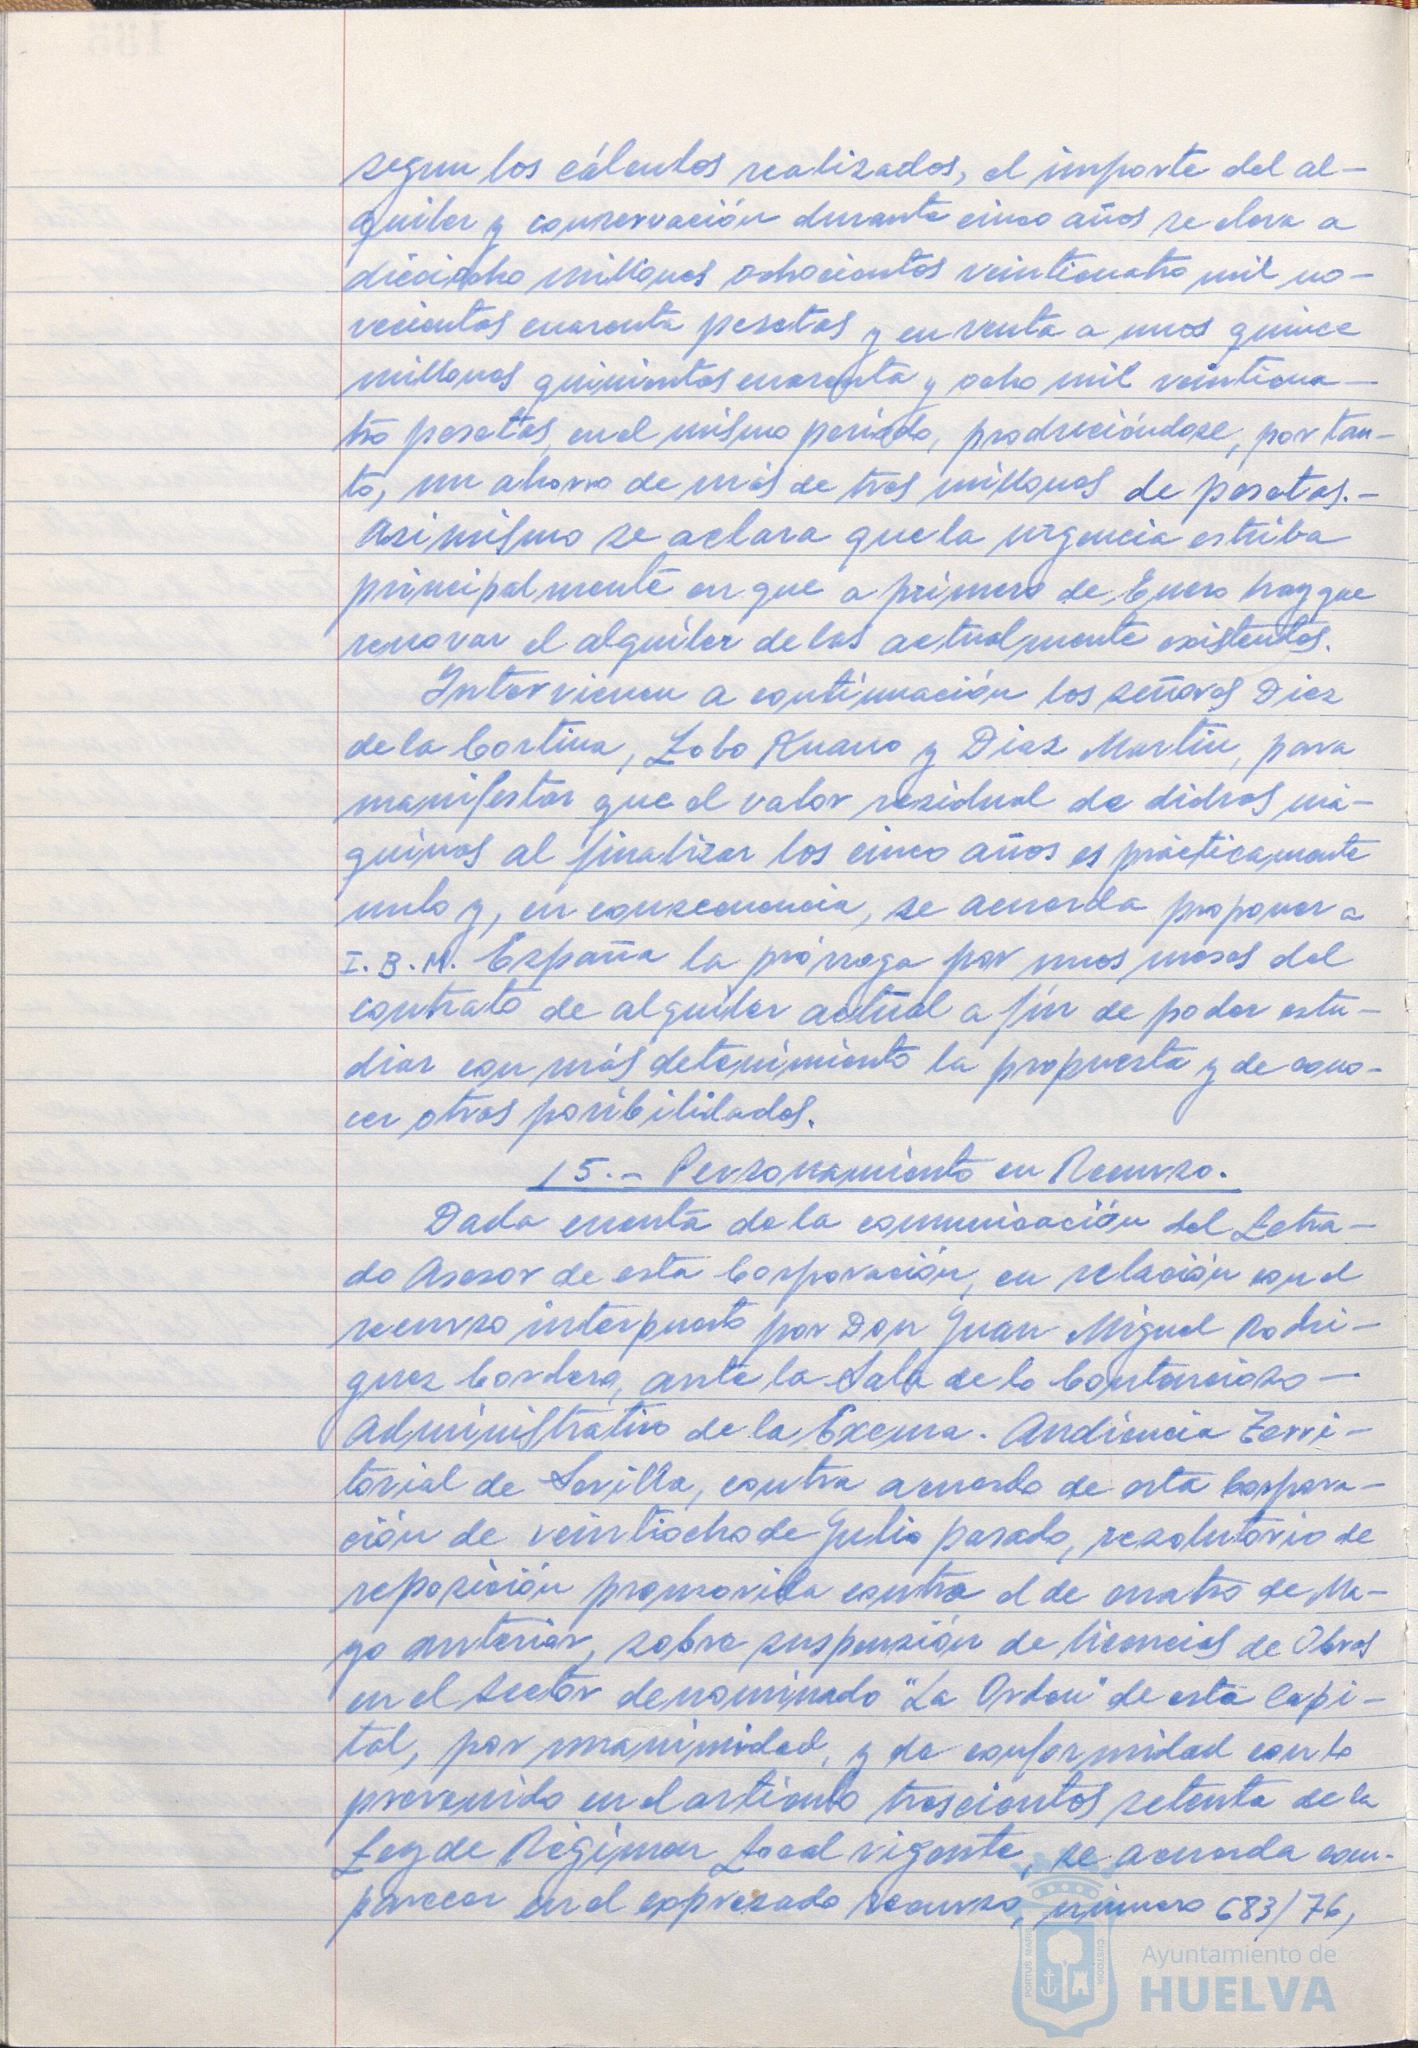 segun los cálculos realizados, el importe del al-
quiler y conservación durante cinco años se eleva a
dieciocho millones ochocientos veinticuatro mil no-
vecientos cuarenta pesetas y en venta a unos quince
millones quinientos cuarenta y ocho mil veinticua-
tro pesetas, en el mismo periodo, produciéndose, por tan-
to, un ahorro de más de tres millones de pesetas.-
Asimismo se aclara que la urgencia estriba
principalmente en que a primero de Enero hay que
renovar el alquiler de las actualmente existentes.
Intervienen a continuación los señores Diez
de la Cortina, Lobo Ruano y Diaz Martin, para
manifestar que el valor residual de dichas má-
quinas al finalizar los cinco años es prácticamente
nulo y, en consecuencia, se acuerda proponer a
I.B.M. España la prórroga por unos meses del
contrato de alquiler actual a fin de poder estu-
diar con más detenimiento la propuesta y de cono-
cer otras posibilidades.
15.- Personamiento en Recurso.
Dada cuenta de la comunicación del Letra-
do Asesor de esta Corporación, en relación con el
recurso interpuesto por Don Juan Miguel Rodri-
guez Cordero, ante la Sala de lo Contencioso-
Administrativo de la Excma. Audiencia Terri-
torial de Sevilla, contra acuerdo de esta Corpora-
ción de veintiocho de Julio pasado, resolutorio de
reposición promovida contra el de cuatro de Ma-
yo anterior, sobre suspensión de licencias de Obras
en el sector denominado "La Orden" de esta Capi-
tal, por unanimidad, y de conformidad con lo
prevenido en el artículo trescientos setenta de la
Ley de Régimen Local vigente, se acuerda com-
parecer en el expresado recurso, número 683/76,
Ayuntamiento de
HUELVA